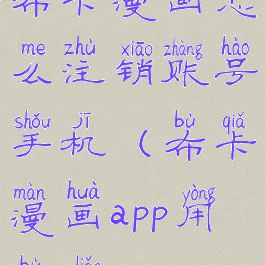 布卡漫画怎
me zhù xiāo zhàng hào
么注销账号
shǒu jī bù qiǎ
手机（布卡
màn huà yòng
漫画app用